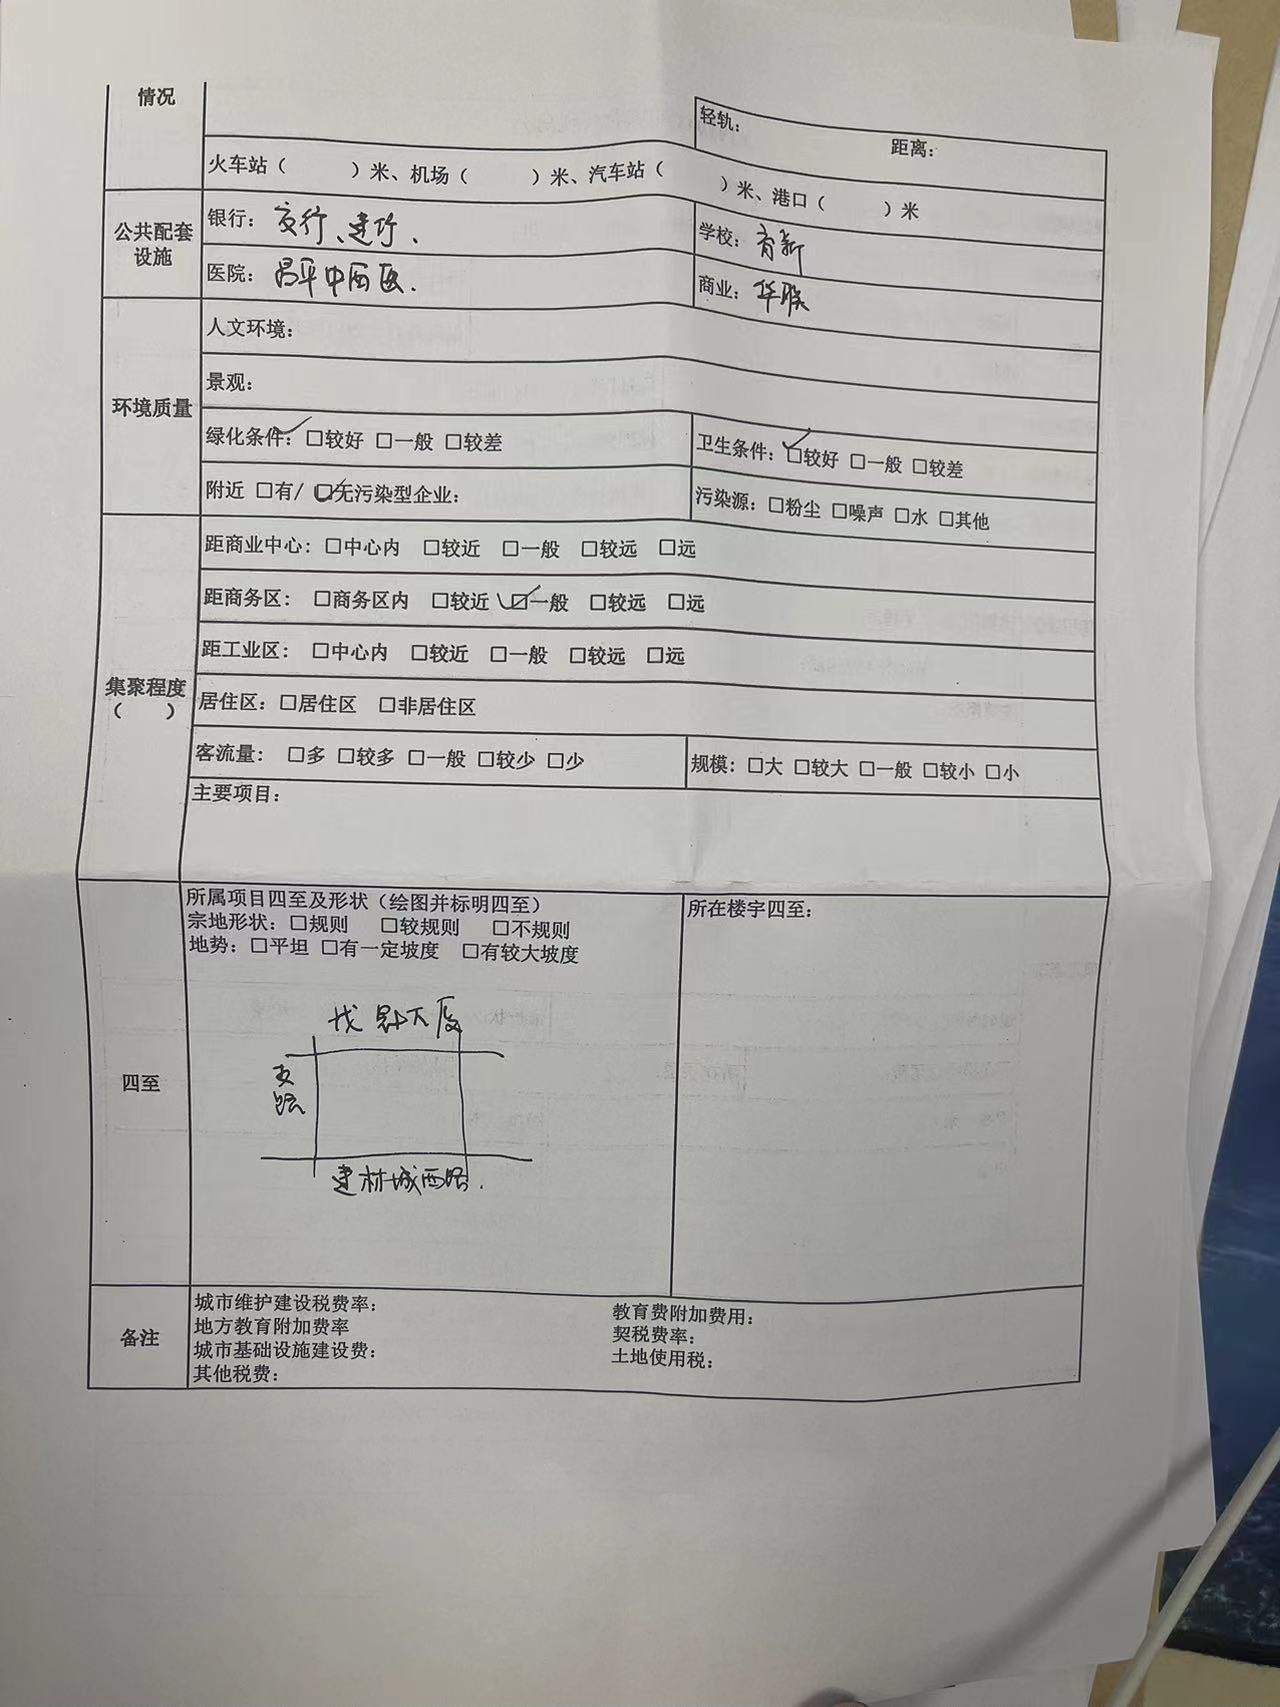 情况
轻轨： 距离：
火车站（ ）米、机场（ ）米、汽车站（ ）米、港口（ ）米
公共配套设施
银行：交行、建行．
学校：育新
医院：昌平中西医．
商业：华联
环境质量
人文环境：
景观：
绿化条件：☐较好 ☐一般 ☐较差
卫生条件：☐较好 ☐一般 ☐较差
附近 ☐有/ ☑无污染型企业：
污染源：☐粉尘 ☐噪声 ☐水 ☐其他
集聚程度
（ ）
距商业中心：☐中心内 ☐较近 ☐一般 ☐较远 ☐远
距商务区： ☐商务区内 ☐较近 ☑一般 ☐较远 ☐远
距工业区： ☐中心内 ☐较近 ☐一般 ☐较远 ☐远
居住区：☐居住区 ☐非居住区
客流量： ☐多 ☐较多 ☐一般 ☐较少 ☐少
规模：☐大 ☐较大 ☐一般 ☐较小 ☐小
主要项目：
四至
所属项目四至及形状（绘图并标明四至）
宗地形状：☐规则 ☐较规则 ☐不规则
地势：☐平坦 ☐有一定坡度 ☐有较大坡度
大厦
支路
建材城西路．
所在楼宇四至：
备注
城市维护建设税费率： 教育费附加费用：
地方教育附加费率 契税费率：
城市基础设施建设费： 土地使用税：
其他税费：